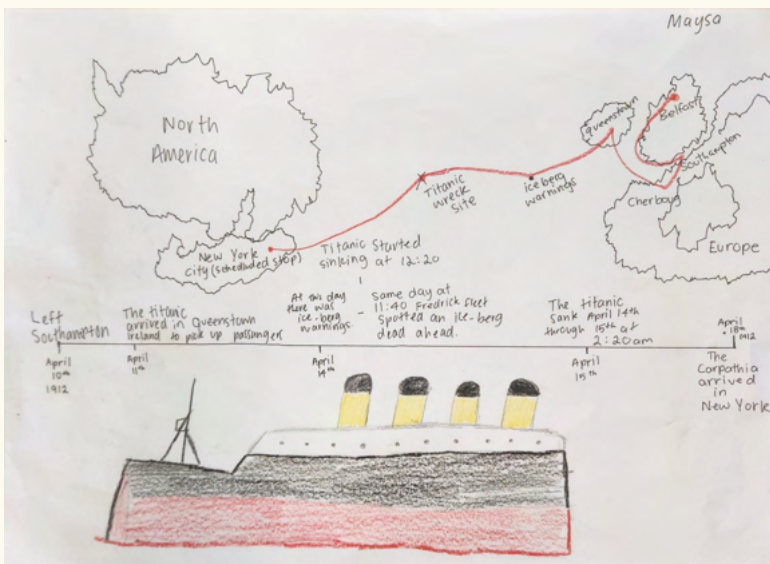 Maysa
North
America
Queenstown
Belfast
Southampton
Cherboug
Europe
iceberg
warnings
Titanic
wreck
site
New York
city (scheduled stop)
Titanic started
sinking at 12:20
Left
Southampton
The titanic
arrived in Queenstown
Ireland to pick up passangers
At this day
there was
ice-berg
warnings.
- same day at
11:40 Fredrick Fleet
spotted an ice-berg
dead ahead.
The titanic
sank April 14th
through 15th at
2:20am
April
18th
1912
April
10th
1912
April
11th
April
14th
April
15th
The
Carpathia
arrived
in
New York